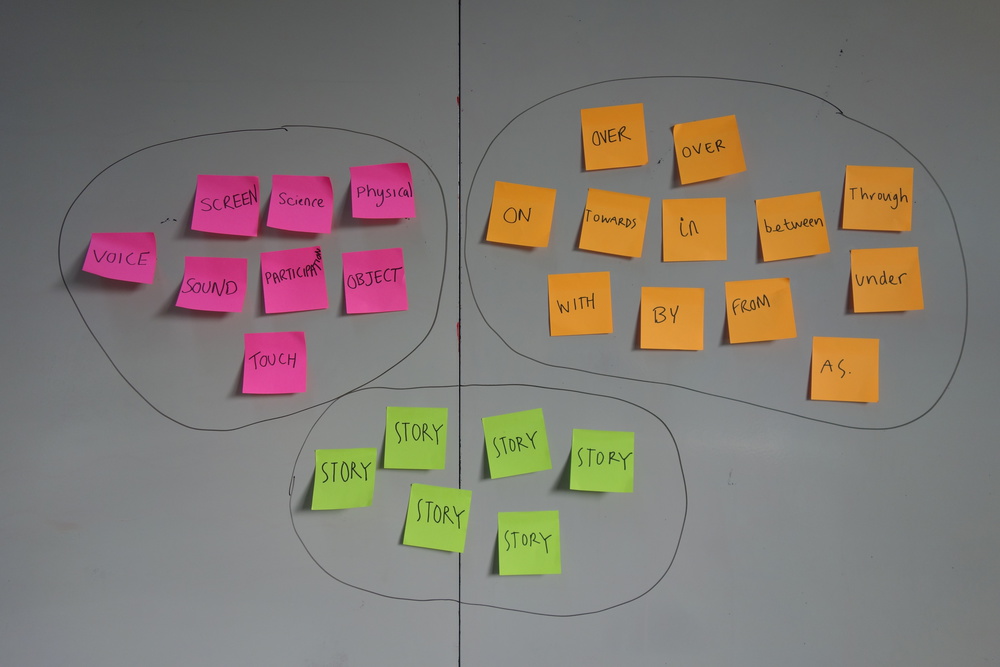 SCREEN
Science
Physical
VOICE
SOUND
PARTICIPATION
OBJECT
TOUCH
OVER
OVER
ON
TOWARDS
in
between
Through
WITH
BY
FROM
under
AS.
STORY
STORY
STORY
STORY
STORY
STORY